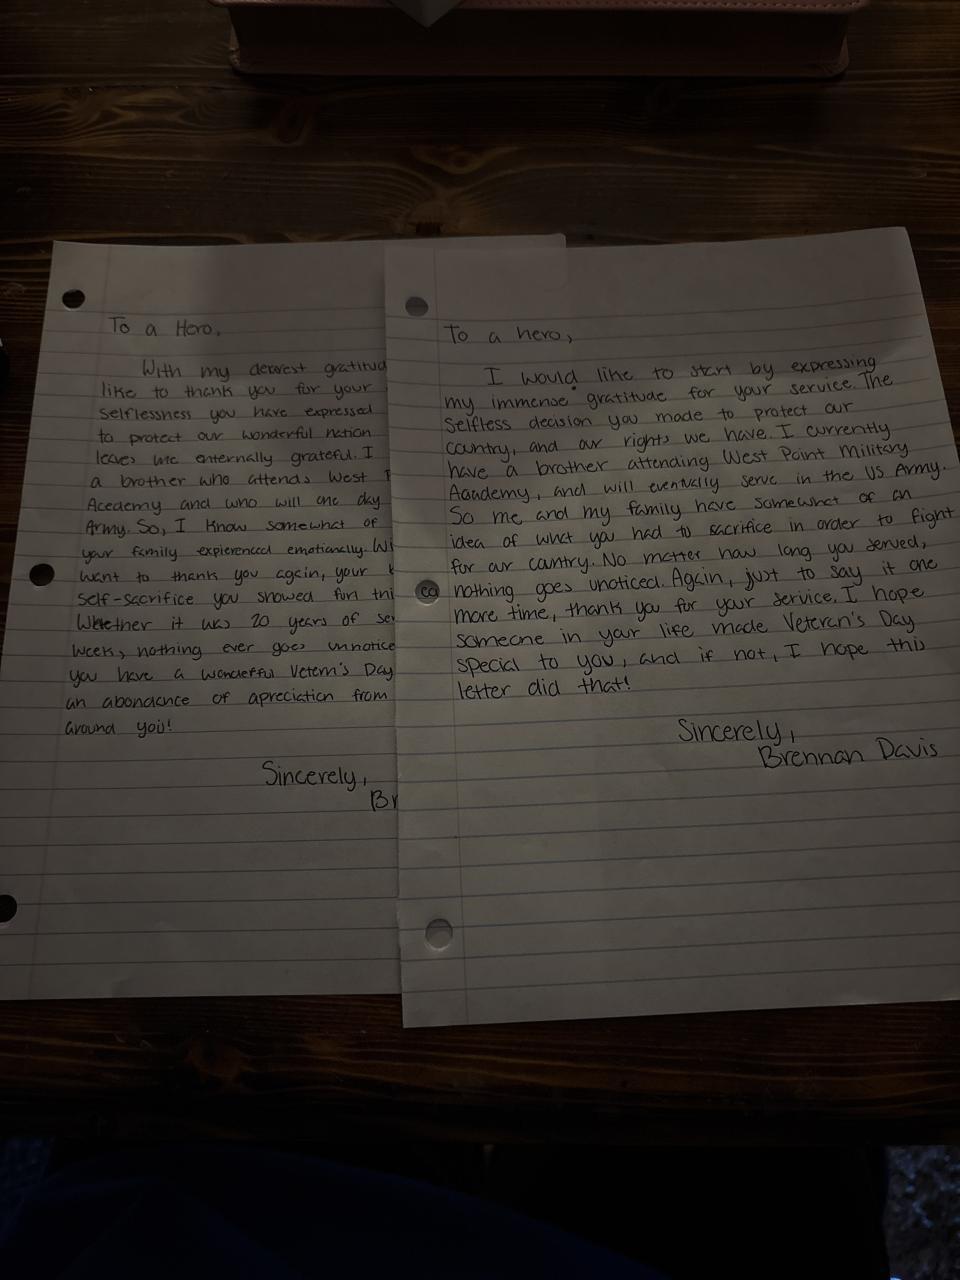 To a Hero,
With my dearest gratitud
like to thank you for your
selflessness you have expressed
to protect our wonderful nation
leaves me enternally grateful. I
a brother who attends West
Acedemy and who will one day
Army. So, I know somewhat of
your family expierenced emotionally. Wi
want to thank you again, your
self-sacrifice you showed for thi
Whether it was 20 years of se
week, nothing ever goes unnotice
you have a wonderful Vetern's Day
an abondance of apreciation from
around you!
Sincerely,
Br
To a hero,
I would like to start by expressing
my immense gratitude for your service. The
selfless decision you made to protect our
country, and our rights we have. I currently
have a brother attending West Point Military
Academy, and will eventually serve in the US Army.
So me and my family have somewhat of an
idea of what you had to sacrifice in order to fight
for our country. No matter how long you served,
nothing goes unoticed. Again, just to say it one
more time, thank you for your service. I hope
someone in your life made Veteran's Day
special to you, and if not, I hope this
letter did that!
Sincerely,
Brennan Davis